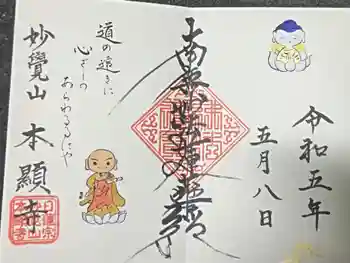 令和五年
五月八日
南無妙法蓮華経
道の遠きに
心ざしの
あらわるるにや
妙覺山 本顯寺